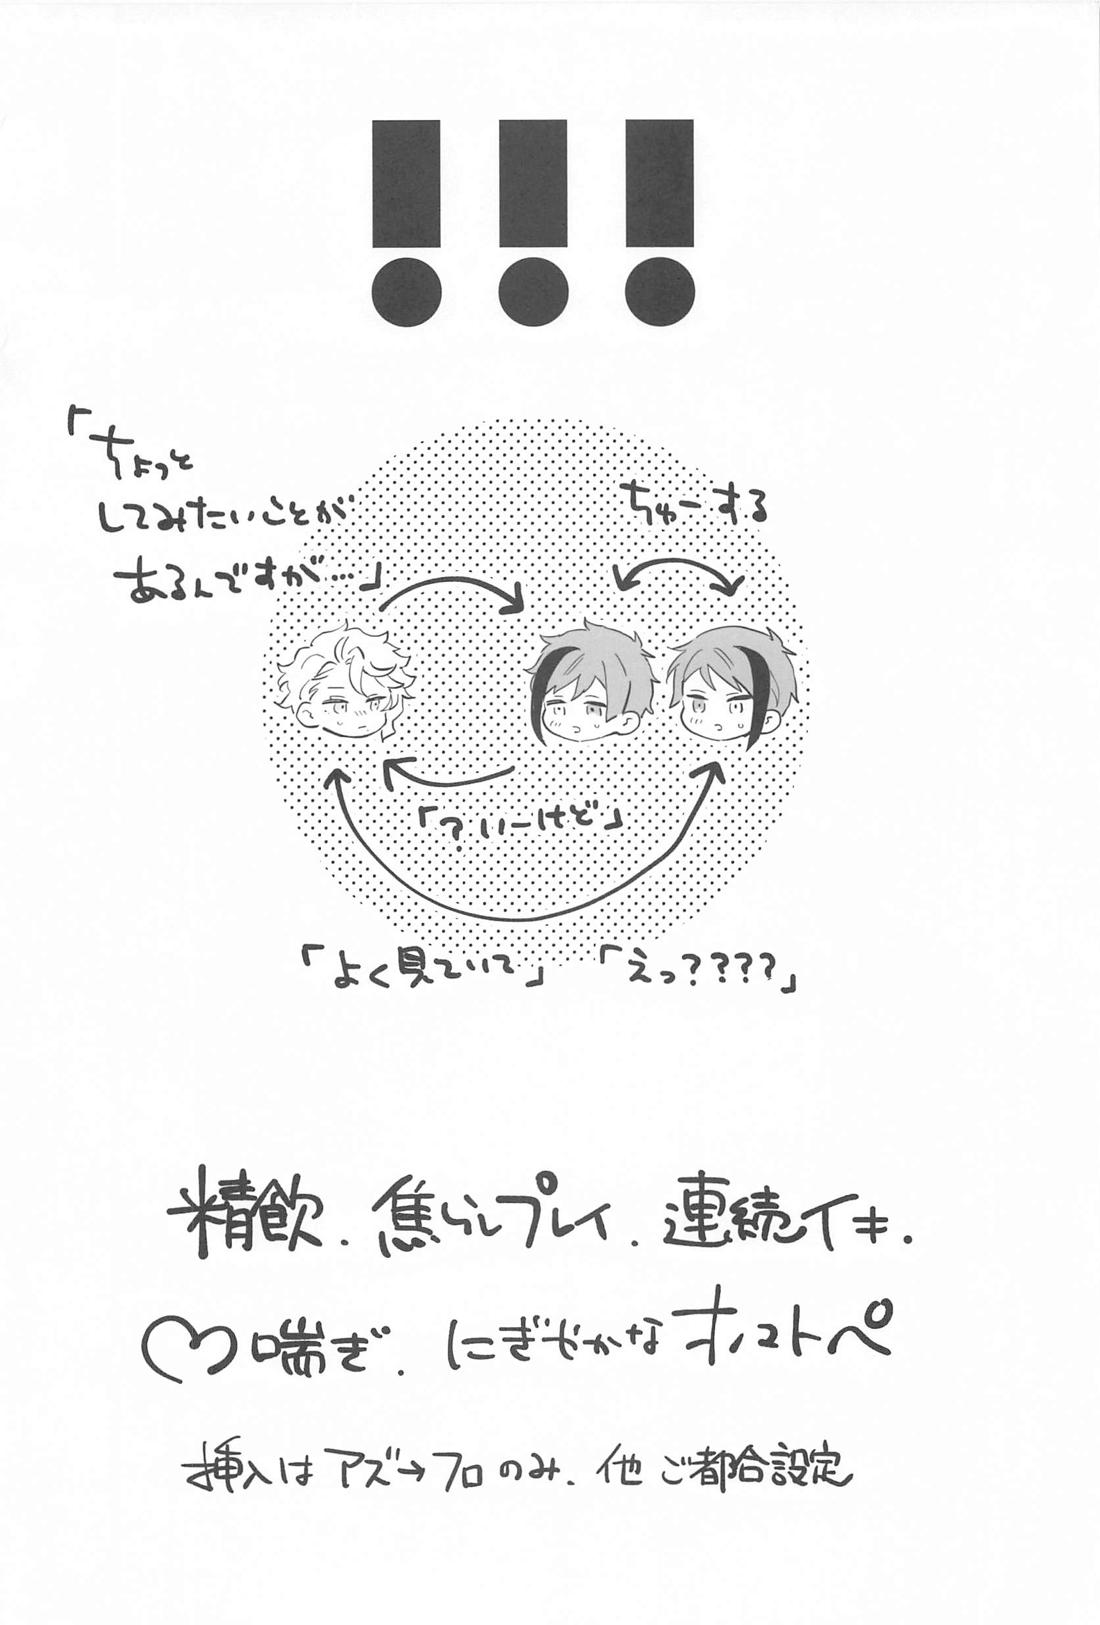 !!!
「ちょっと
してみたいことが
あるんですが…」
ちゅーする
「?いーけど」
「よく見ていて」 「えっ????」
精飲. 焦らしプレイ. 連続イキ.
♡喘ぎ. にぎやかなオノマトペ
挿入はアズ→フロのみ. 他ご都合設定